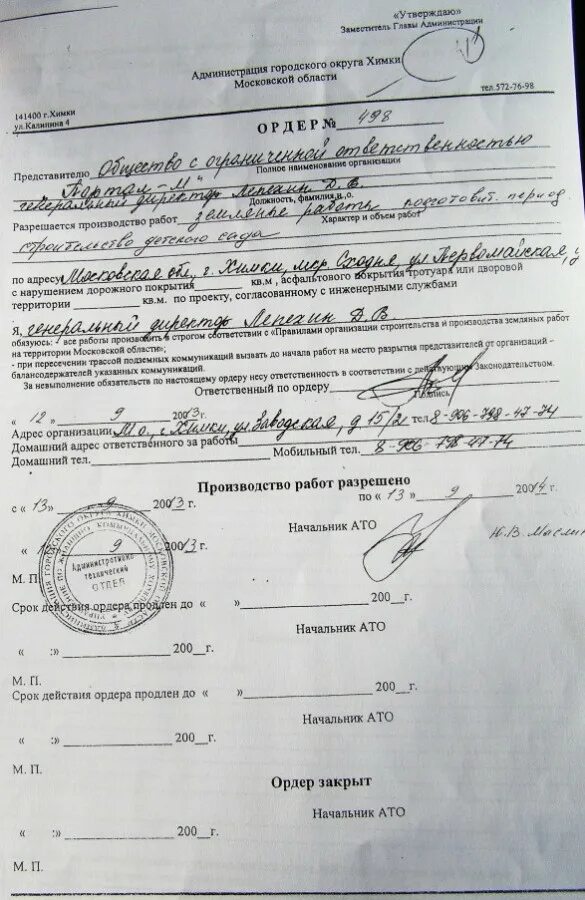 «Утверждаю»
Заместитель Главы Администрации
Администрация городского округа Химки
Московской области
141400 г.Химки
ул.Калинина 4
тел.572-76-98
ОРДЕР № 498
Представителю Общество с ограниченной ответственностью
Полное наименование организации
"Портал-М"
генеральный директор Лепехин Д.В.
Должность, фамилия, и.о.
Разрешается производство работ земляные работы подготовит. период
Характер и объем работ
строительство детского сада
по адресу Московская обл., г. Химки, мкр. Сходня, ул Первомайская, у
с нарушением дорожного покрытия ________ кв.м , асфальтового покрытия тротуара или дворовой
территории ________ кв.м. по проекту, согласованному с инженерными службами
я, генеральный директор Лепехин Д.В.
обязуюсь: - все работы производить в строгом соответствии с «Правилами организации строительства и производства земляных работ
на территории Московской области»;
- при пересечении трассой подземных коммуникаций вызвать до начала работ на место разрытия представителей от организаций –
балансодержателей указанных коммуникаций.
За невыполнение обязательств по настоящему ордеру несу ответственность в соответствии с действующим Законодательством.
Ответственный по ордеру
Подпись
« 12 » 9 20013г.
Адрес организации М.о., г. Химки, ул. Заводская, д 15/21 тел 8-906-798-47-74
Домашний адрес ответственного за работы
Домашний тел. Мобильный тел. 8-906-798-47-74
Производство работ разрешено
с « 13» 9 20013 г. по « 13 » 9 20014 г.
Начальник АТО
9 20013 г.
М. П.
Административно
технический
ОТДЕЛ
Срок действия ордера продлен до « » 200__г.
Начальник АТО
« :» 200__г.
М. П.
Срок действия ордера продлен до « » 200__г.
Начальник АТО
« :» 200__г.
М. П.
Ордер закрыт
Начальник АТО
« :» 200__г.
М. П.